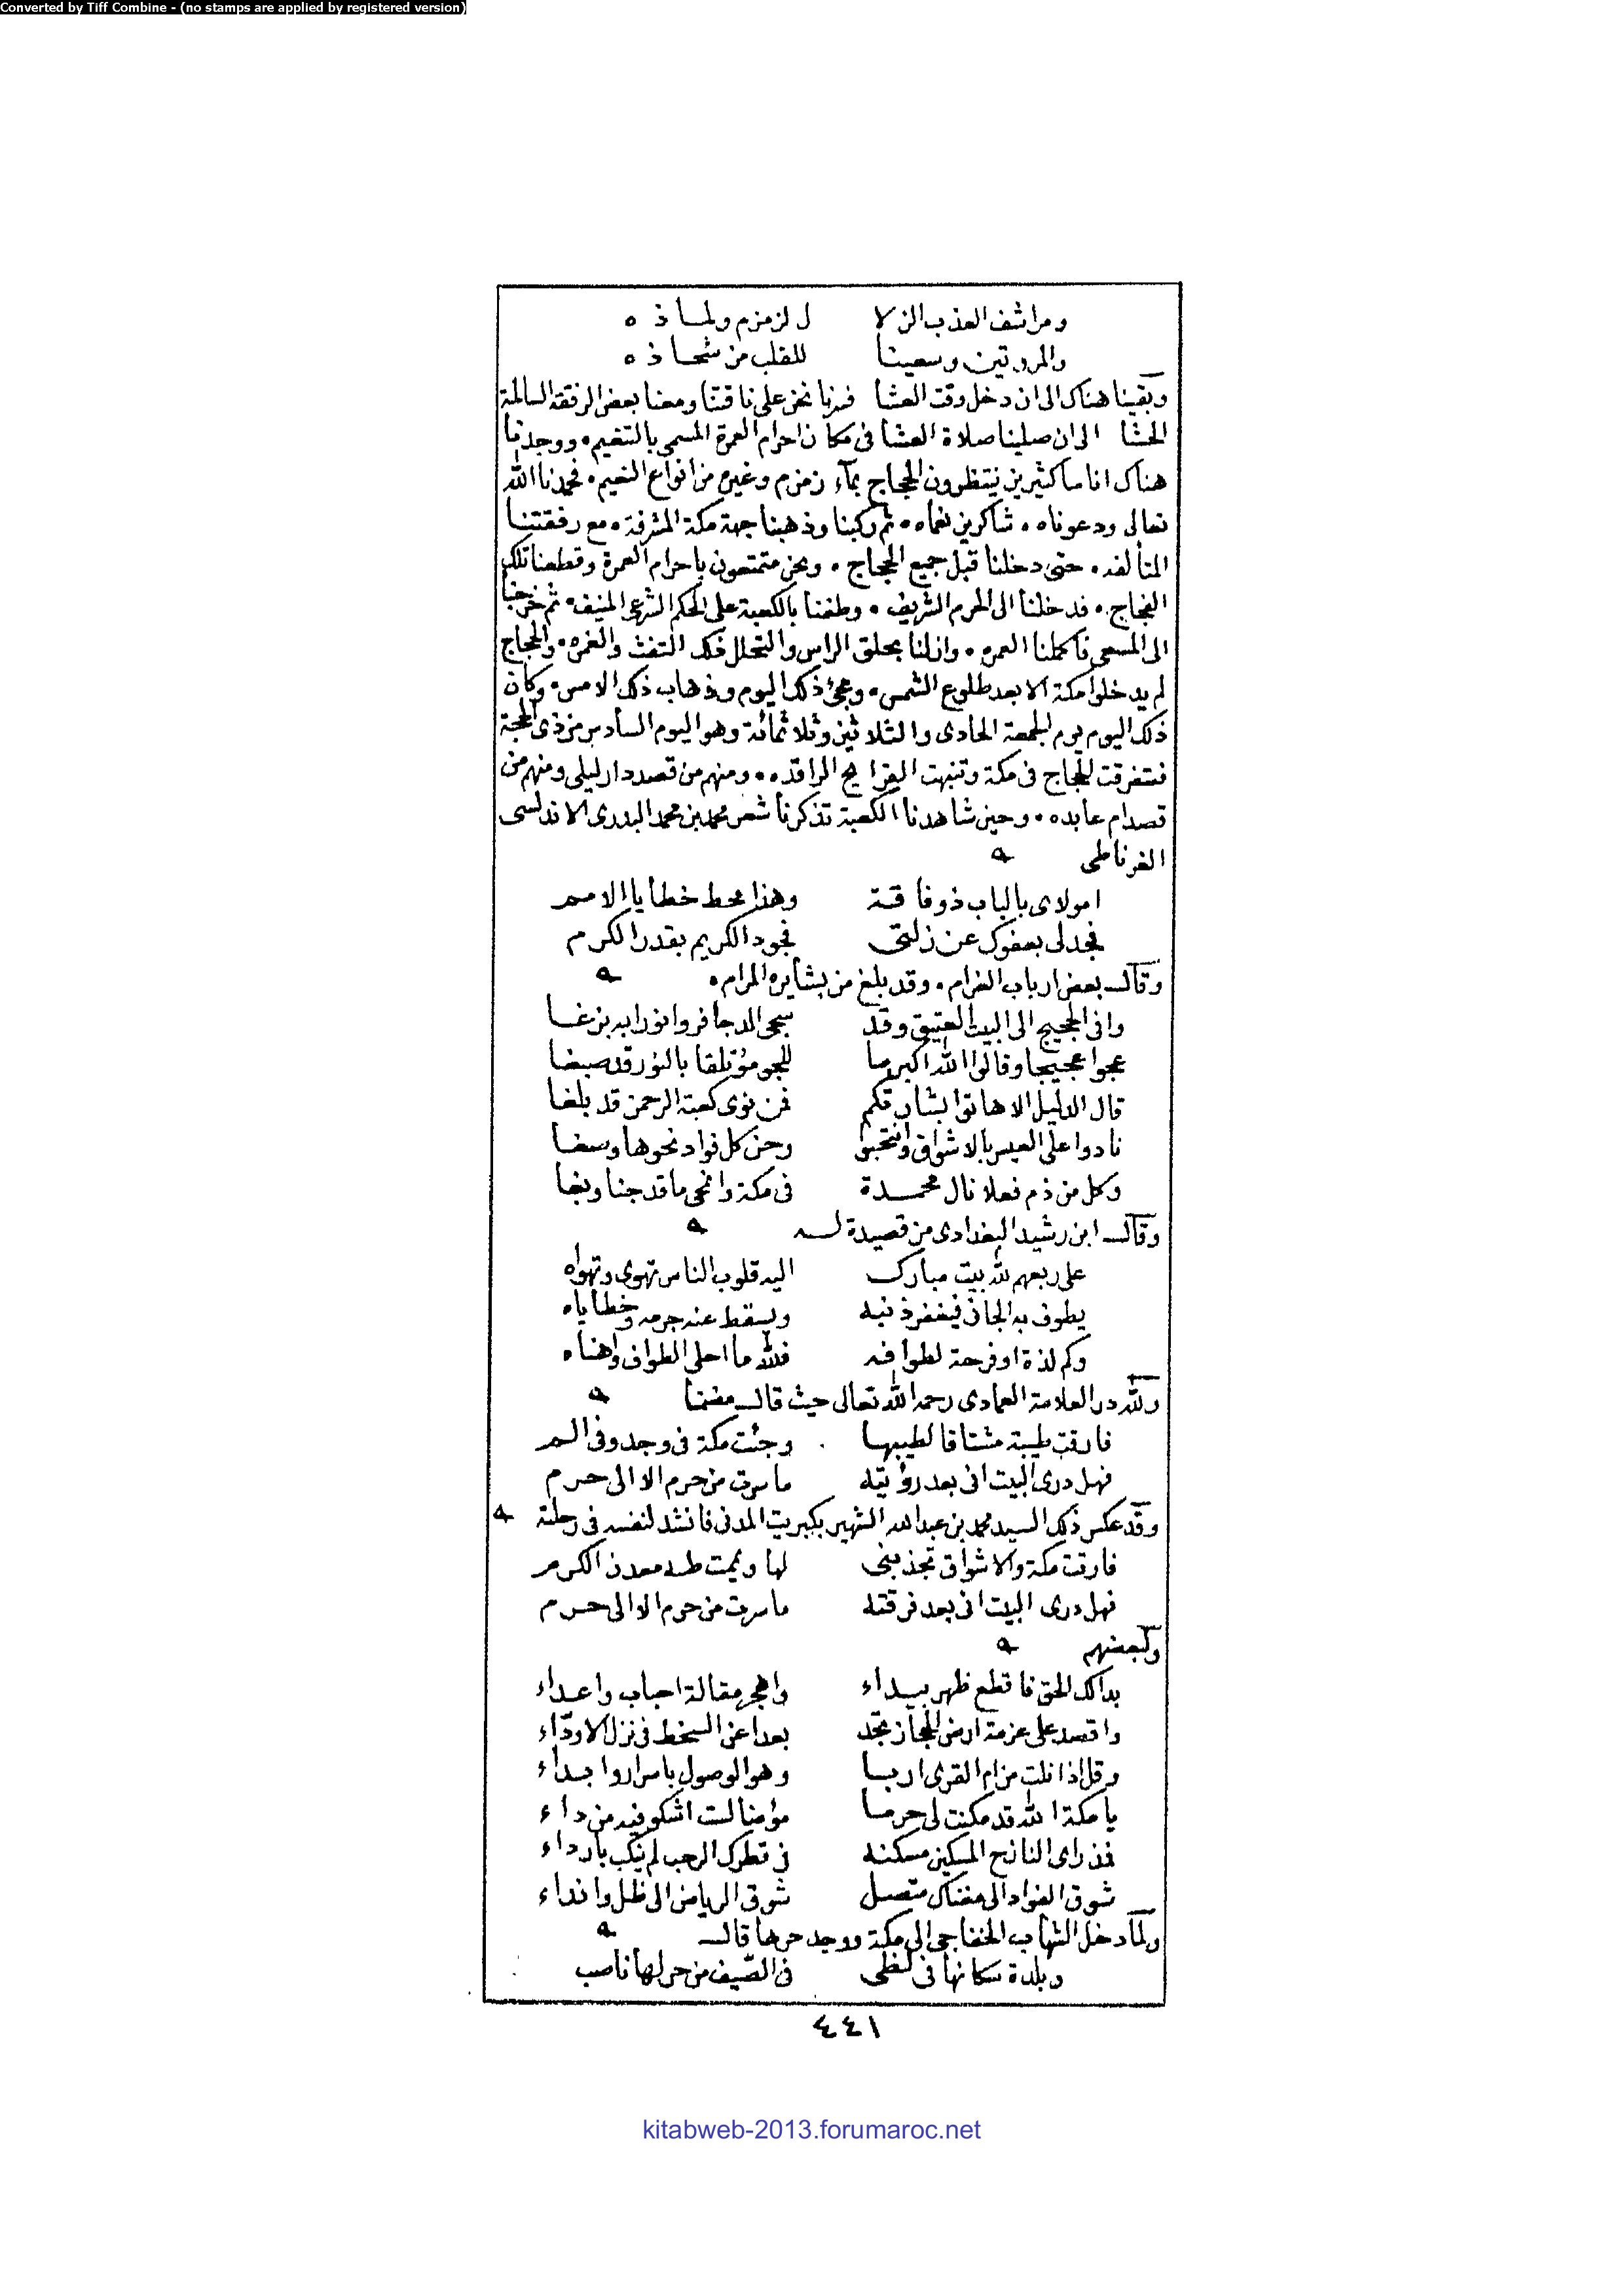 Converted by Tiff Combine - (no stamps are applied by registered version)
ومراشف العذب الزلا ل لزمزم ولماذه
والمروتين وسعينا للقلب من شحاذه
وبقينا هناك الى ان دخل وقت العشا فسرنا نحن على ناقتنا ومعنا بعض الرفقة السالمة
الحشا الى ان صلينا صلاة العشا فى مكان احرام العمرة المسمى بالتنعيم. ووجدنا
هناك اناسا كثيرين ينتظرون الحجاج بمآء زمزم وغيره من انواع النعيم. فحمدنا الله
تعالى ودعوناه. شاكرين نعماه. ثم ركبنا وذهبنا جهة مكة المشرفة. مع رفقتنا
المتألفه. حتى دخلنا قبل جميع الحجاج. ونحن متمتعون باحرام العمرة وقطعنا تلك
الفجاج. فدخلنا الى الحرم الشريف. وطفنا بالكعبة على الحكم الشرعى المنيف. ثم خرجنا
الى المسعى فاكملنا العمره. وازلنا بحلق الراس والتحلل ذلك التفث والغمره. والحجاج
لم يدخلوا مكة الا بعد طلوع الشمس. ومجئ ذلك اليوم وذهاب ذلك الامس. وكان
ذلك اليوم يوم الجمعة الحادى والثلاثين وثلاثمائة وهو اليوم السادس من ذى الحجة
فتفرقت الحجاج فى مكة وتنبهت القرايح الراقده. ومنهم من قصد دار ليلى ومنهم من
قصد ام عابده. وحين شاهدنا الكعبة تذكرنا شعر محمد بن محمد البدرى الاندلسى
الغرناطى
امولاى بالباب ذو فاقة وهذا محط خطايا الامم
فجد لى بعفوك عن زلتى فجود الكريم بقدر الكرم
وقال بعض ارباب الغرام. وقد بلغ من بشايره المرام.
وافى الحجيج الى البيت العتيق وقد سجى الدجا فروا نورا به بزغا
عجوا عجيجا وقالوا الله اكبر ما للجو مؤتلقا بالنور قد صبغا
قال الدليل الا هاتوا بشارتكم فمن نوى كعبة الرحمن قد بلغا
نادوا على العيس بالاشواق وانتحبوا وحن كل فواد نحوها وصغا
وكل من ذم فعلا نال محمدة فى مكة وانمحى ما قد جنا وبغا
وقال ابن رشيد البغدادى من قصيدة له
على ربعهم لله بيت مبارك اليه قلوب الناس تهوى وتهواه
يطوف به الجانى فيغفر ذنبه ويسقط عنه جرمه وخطاياه
وكم لذة او فرحة لطوافه فلله ما احلى الطواف واهناه
ولله در العلامة العمادى رحمه الله تعالى حيث قال مضمنا
فارقت طيبة مشتاقا لطيبها وجئت مكة فى وجد وفى الم
فهل درى البيت انى بعد رؤيته ما سرت من حرم الا الى حرم
وقد عكس ذلك السيد محمد بن عبد الله الشهير بكبريت المدنى فانشد لنفسه فى رحلته
فارقت مكة والاشواق تجذبنى لها ويممت طه معدن الكرم
فهل درى البيت انى بعد فرقته ما سرت من حرم الا الى حرم
ولبعضهم
بدا لك الحق فاقطع ظهر بيداء واهجر مقالة احباب واعداء
واقصد على عزمة ارض الحجاز تجد بعدا عن السخط فى نزل الاودّاء
وقل اذا نلت من ام القرى اربا وهو الوصول باسرار وابداء
يا مكة الله قد مكنت لى حرما مؤمنا لست اشكو فيه من داء
فمذ راى النازح المسكين مسكنه فى قطرك الرحب لم ينكب بارداء
شوق الفواد الى مغناك متصل شوق الرياض الى طل وانداء
ولما دخل الشهاب الخفاجى الى مكة ووجد حرها قال
وبلدة سكانها فى لظى فى الصّيف من حر لها ناصب
٤٤١
kitabweb-2013.forumaroc.net